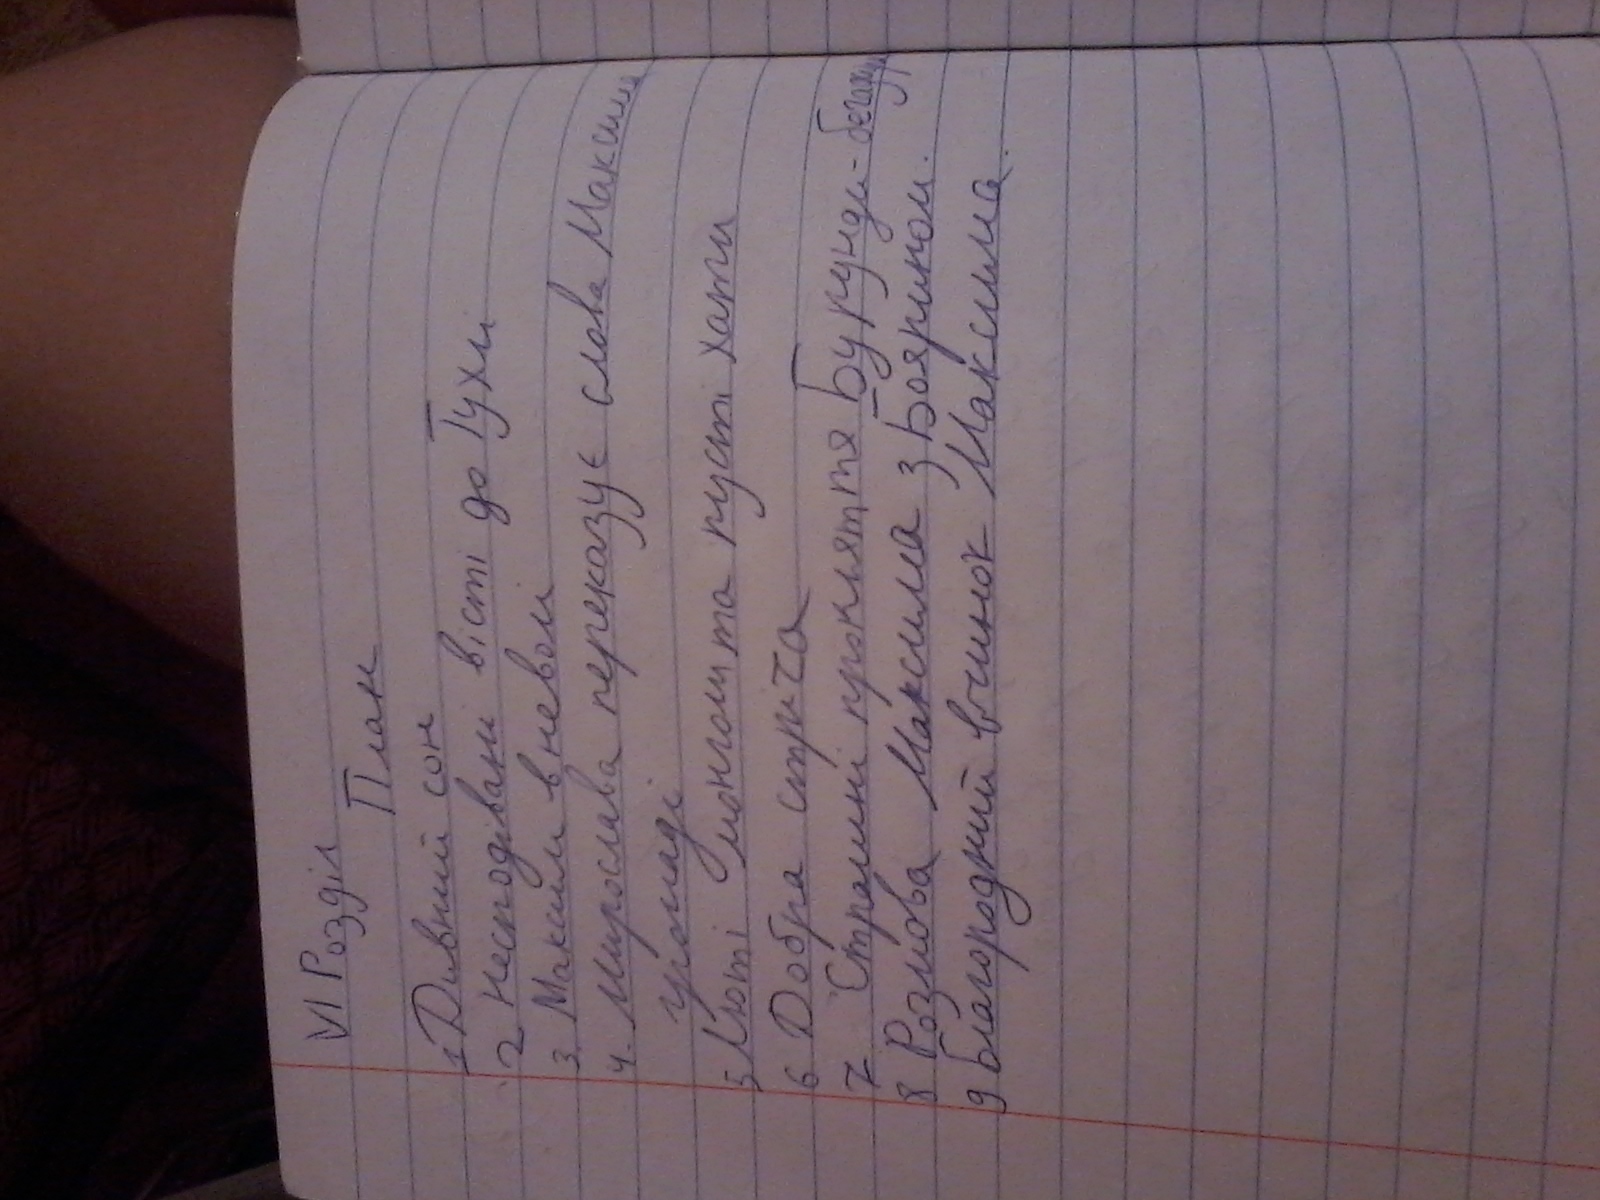 VI Розділ
План
1 Дивний сон
2 Несподівані вісті до Тухлі
3. Максим в неволі
4. Мирослава переказує слова Максима
громаді
5 Люті монголи та пусті хати
6 Добра стріча
7 Страшні прокляття Бурунди-бегадира
8 Розмова Максима з Боярином.
9 Благородний вчинок Максима.